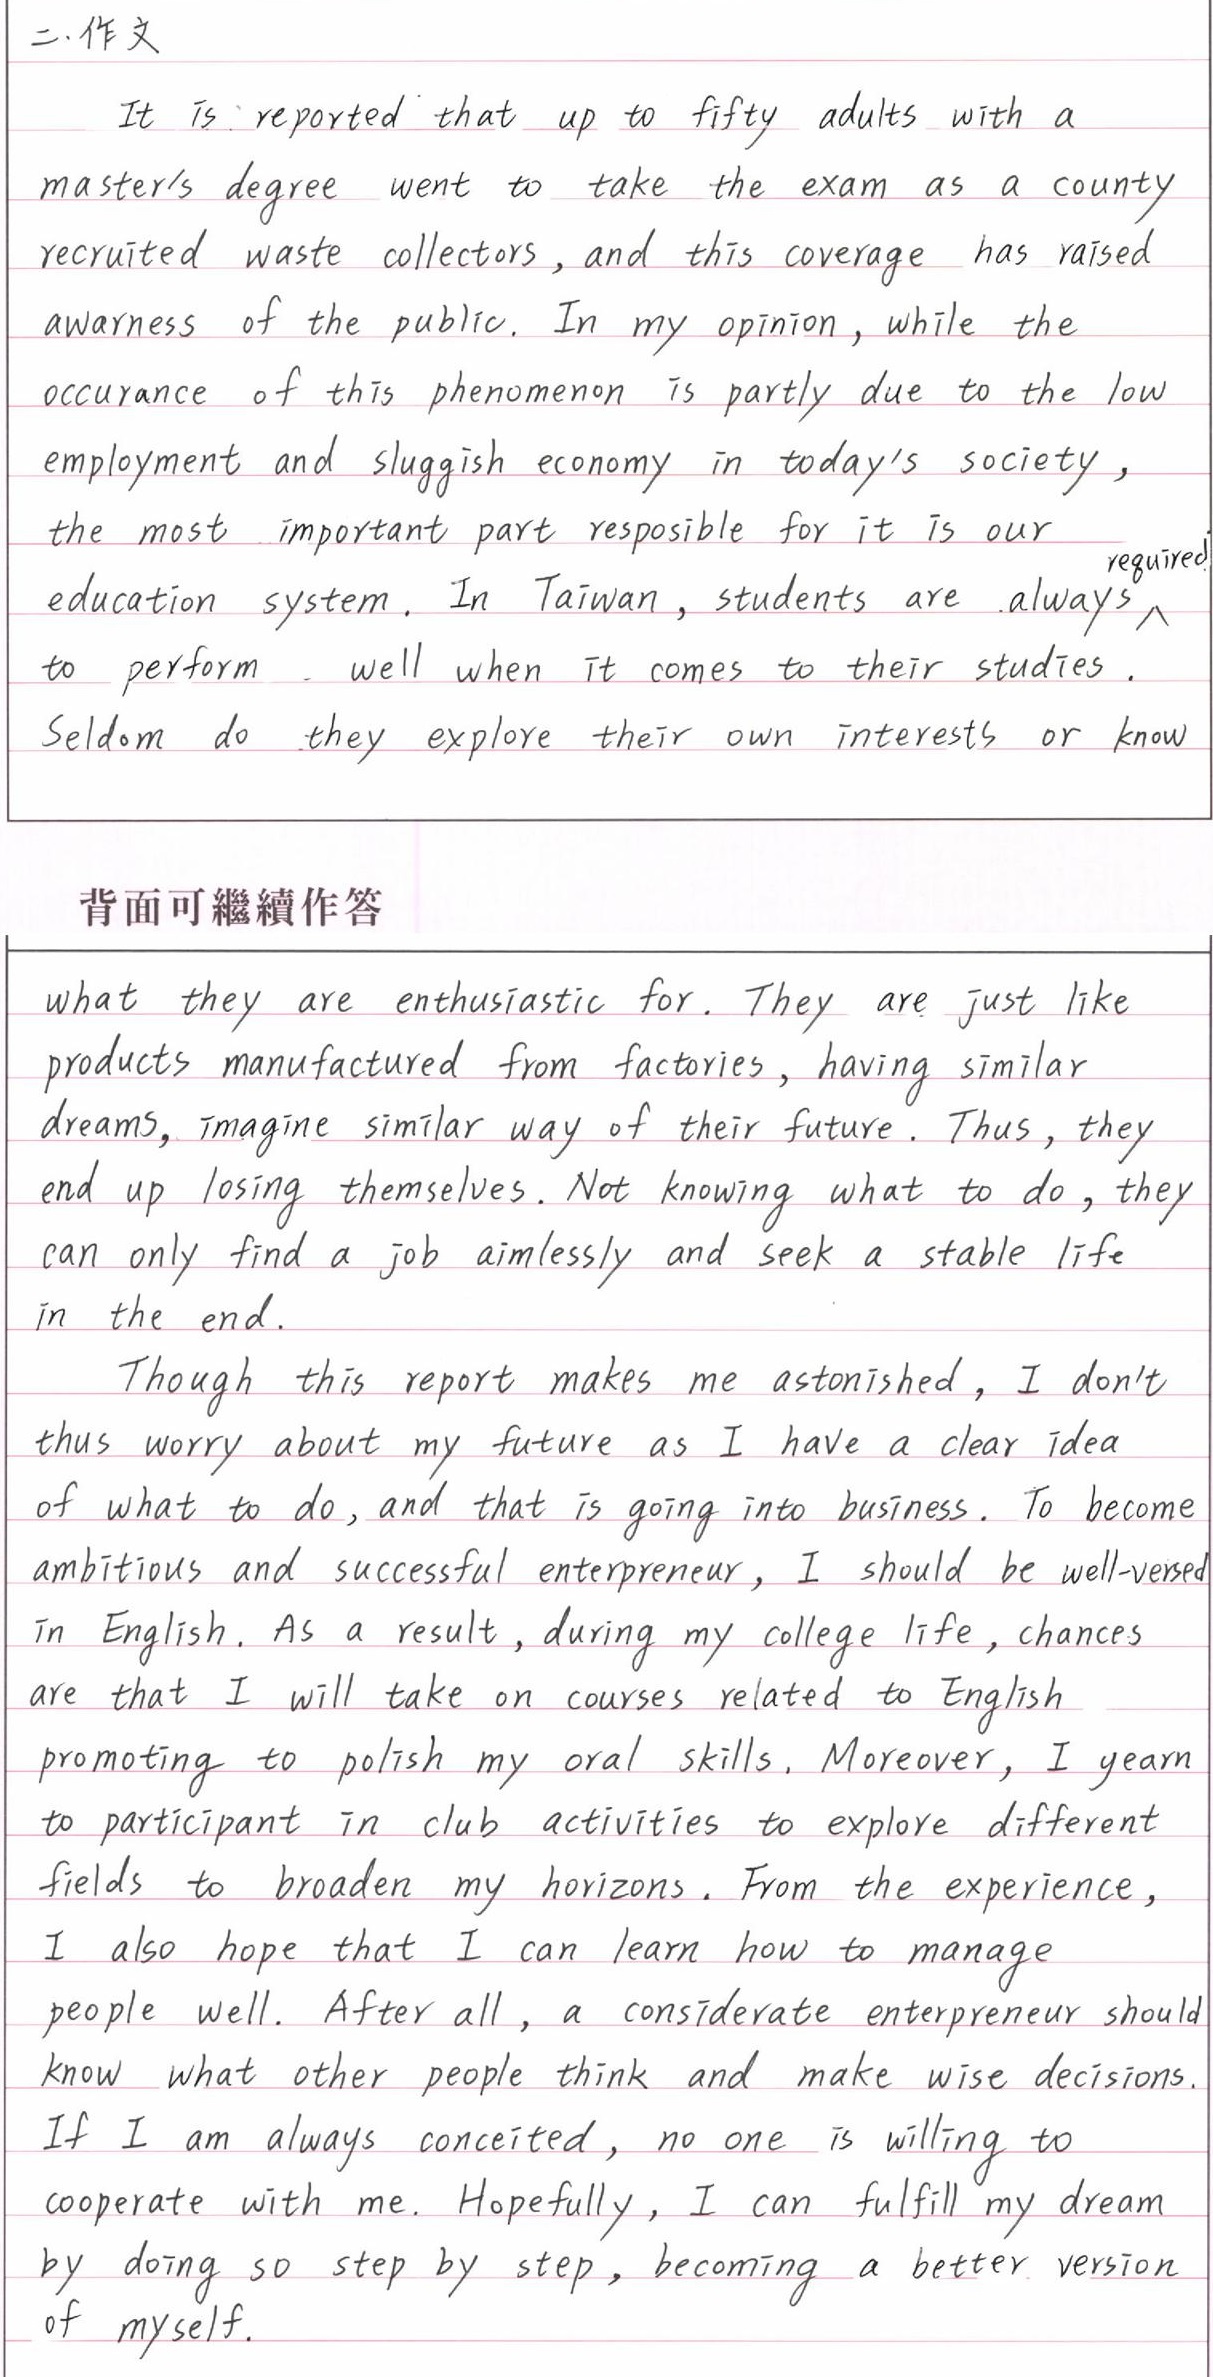 二.作文
It is reported that up to fifty adults with a
master's degree went to take the exam as a county
recruited waste collectors, and this coverage has raised
awarness of the public. In my opinion, while the
occurance of this phenomenon is partly due to the low
employment and sluggish economy in today's society,
the most important part resposible for it is our
education system. In Taiwan, students are always required
to perform well when it comes to their studies.
Seldom do they explore their own interests or know
背面可繼續作答
what they are enthusiastic for. They are just like
products manufactured from factories, having similar
dreams, imagine similar way of their future. Thus, they
end up losing themselves. Not knowing what to do, they
can only find a job aimlessly and seek a stable life
in the end.
Though this report makes me astonished, I don't
thus worry about my future as I have a clear idea
of what to do, and that is going into business. To become
ambitious and successful enterpreneur, I should be well-versed
in English. As a result, during my college life, chances
are that I will take on courses related to English
promoting to polish my oral skills. Moreover, I yearn
to participant in club activities to explore different
fields to broaden my horizons. From the experience,
I also hope that I can learn how to manage
people well. After all, a considerate enterpreneur should
know what other people think and make wise decisions.
If I am always conceited, no one is willing to
cooperate with me. Hopefully, I can fulfill my dream
by doing so step by step, becoming a better version
of myself.